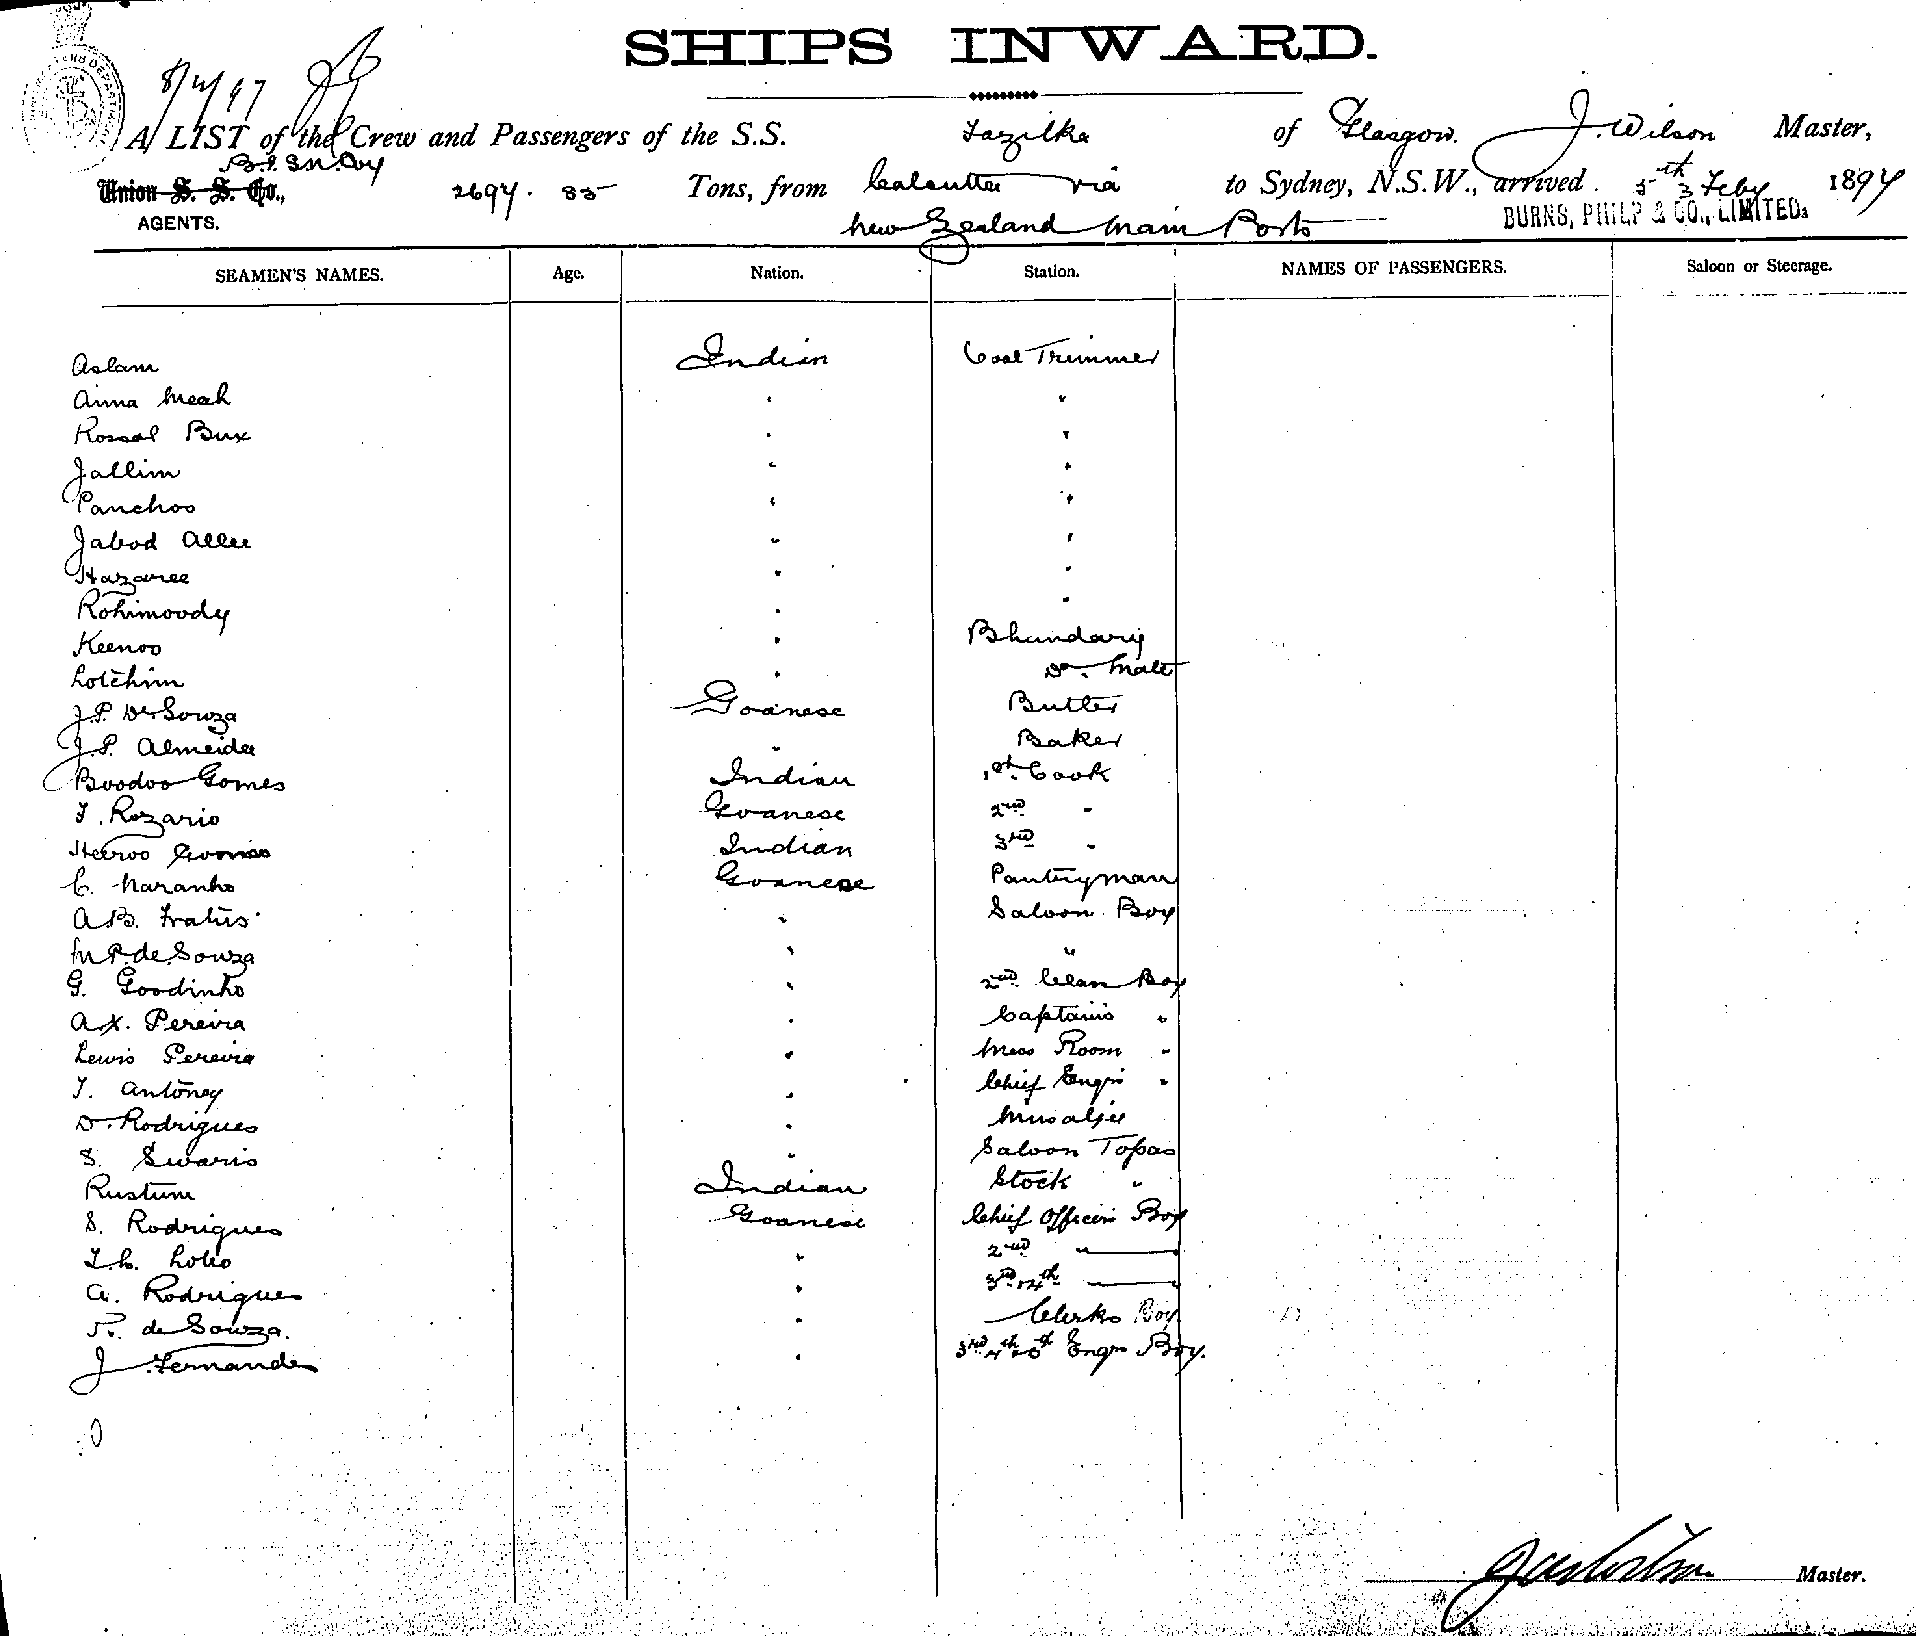 SHIPS INWARD.
8/2/97
A LIST of the Crew and Passengers of the S.S. Fazilka of Glasgow. J. Wilson Master,
B.I. S.N. Coy
Union S. S. Co., 2697. 35 Tons, from Calcutta via to Sydney, N.S.W., arrived 5th Feby 1897
AGENTS. New Zealand Main Ports BURNS, PHILP & CO., LIMITED.
SEAMEN'S NAMES. Age. Nation. Station. NAMES OF PASSENGERS. Saloon or Steerage.
Aslam Indian Coal Trimmer
Anna Meah " "
Rossal Bux " "
Jallim " "
Panchoo " "
Jabod Allee " "
Hazaree " "
Rohimoody " "
Keenoo " Bhundary
Lotchim " Do. Mate
J.P. De Souza Goanese Butler
J.P. Almeida " Baker
Boodoo Gomes Indian 1st. Cook
F. Rozario Goanese 2nd "
Heeroo Gomes Indian 3rd "
C. Naranho Goanese Pantryman
A.B. Fratus " Saloon Boy
M.P. de Souza " "
G. Goodinho " 2nd Class Boy
A.X. Pereira " Captains "
Lewis Pereira " Mess Room "
F. Antoney " Chief Engrs "
D. Rodrigues " Musaljee
S. Swaris " Saloon Topas
Rustum Indian Stock "
S. Rodrigues Goanese Chief Officers Boy
L.C. Lobo " 2nd "
A. Rodrigues " 3rd, 4th
P. de Souza. " Clerks Boy
J. Fernandes " 3rd 4th 5th Engrs Boy.
Master.